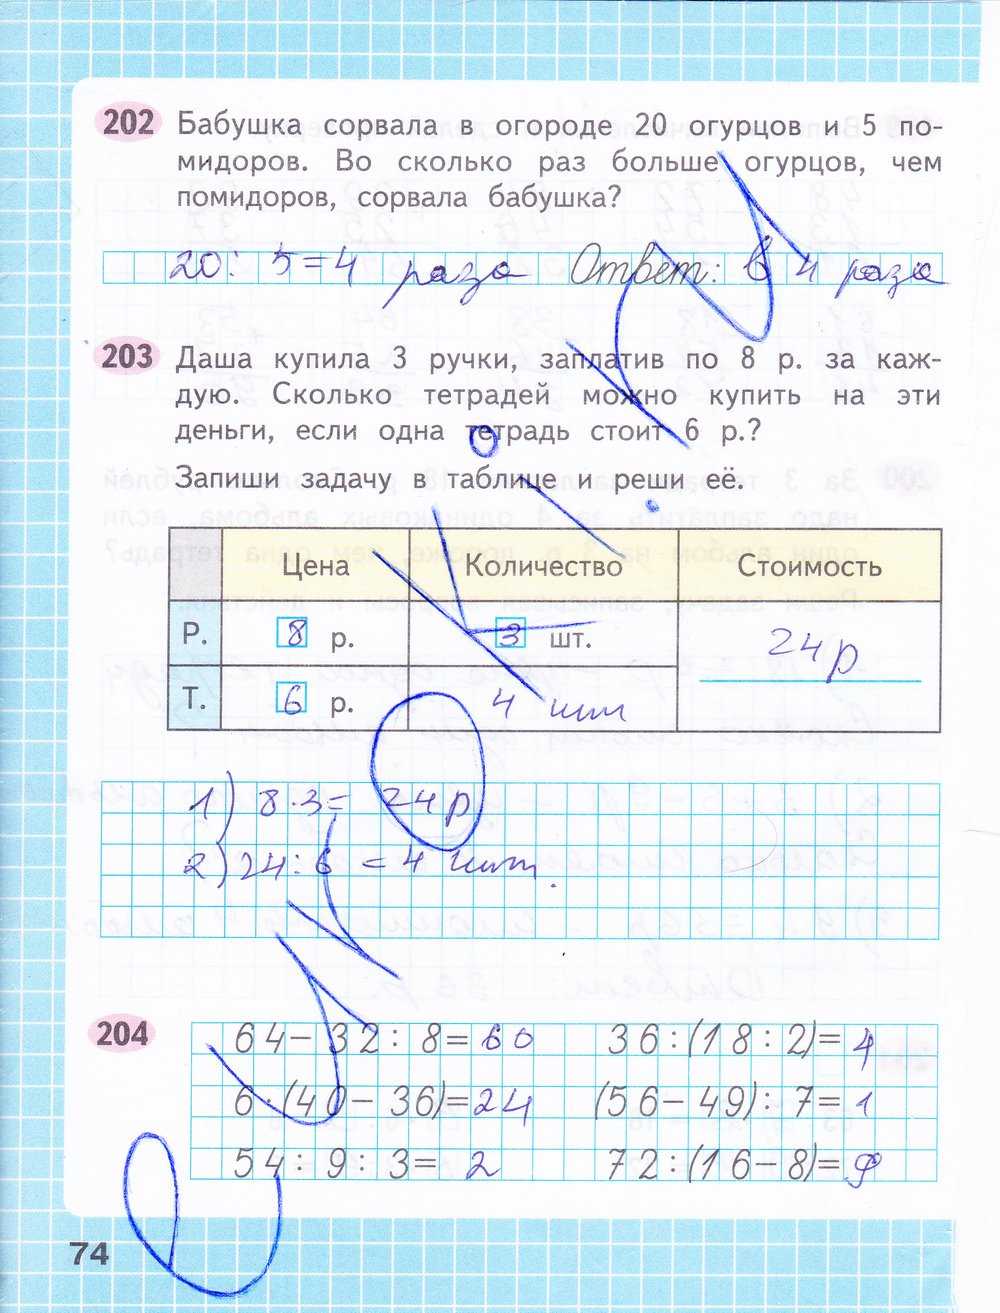 202 Бабушка сорвала в огороде 20 огурцов и 5 по-
мидоров. Во сколько раз больше огурцов, чем
помидоров, сорвала бабушка?
20 : 5 = 4 раза Ответ: в 4 раза
203 Даша купила 3 ручки, заплатив по 8 р. за каж-
дую. Сколько тетрадей можно купить на эти
деньги, если одна тетрадь стоит 6 р.?
Запиши задачу в таблице и реши её.
Цена Количество Стоимость
Р. 8 р. 3 шт. 24 р
Т. 6 р. 4 шт
1) 8·3= 24 р
2) 24:6 = 4 шт.
204 64−32:8=60 36:(18:2)=4
6·(40−36)=24 (56−49):7=1
54:9:3=2 72:(16−8)=9
74